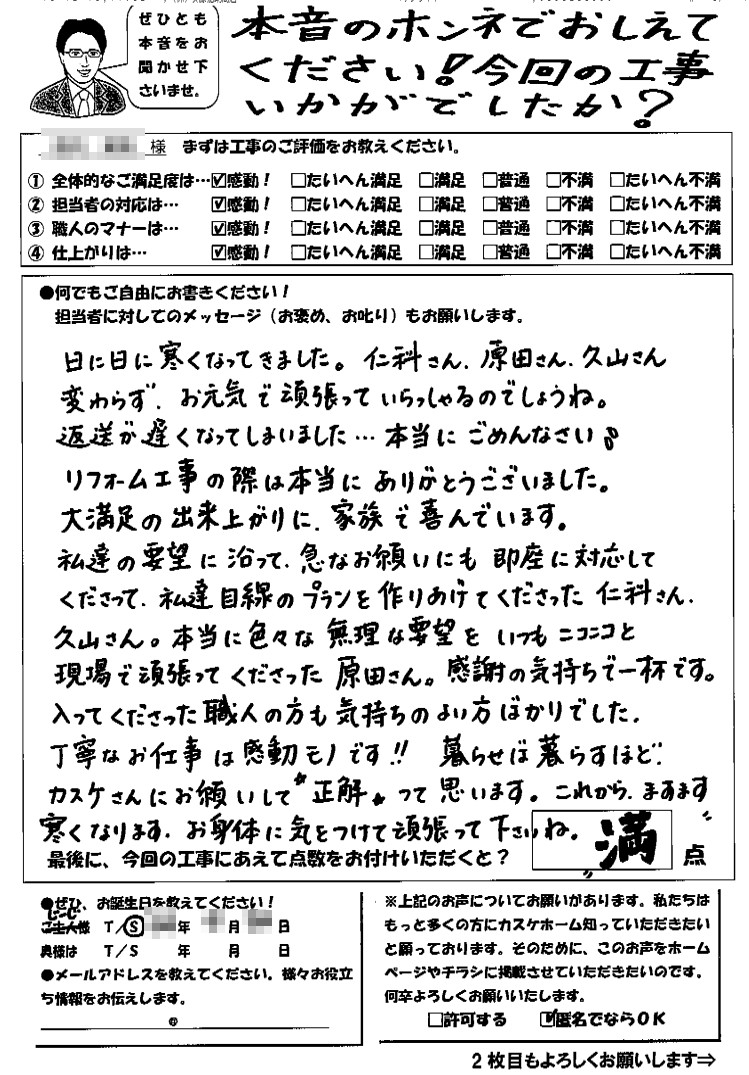 ぜひとも
本音をお
聞かせ下
さいませ。
本音のホンネでおしえて
ください!今回の工事
いかがでしたか?
様 まずは工事のご評価をお教えください。
① 全体的なご満足度は… ☑感動! □たいへん満足 □満足 □普通 □不満 □たいへん不満
② 担当者の対応は… ☑感動! □たいへん満足 □満足 □普通 □不満 □たいへん不満
③ 職人のマナーは… ☑感動! □たいへん満足 □満足 □普通 □不満 □たいへん不満
④ 仕上がりは… ☑感動! □たいへん満足 □満足 □普通 □不満 □たいへん不満
●何でもご自由にお書きください!
担当者に対してのメッセージ(お褒め、お叱り)もお願いします。
日に日に寒くなってきました。仁科さん、原田さん、久山さん
変わらず、お元気で頑張っていらっしゃるのでしょうね。
返送が遅くなってしまいました…本当にごめんなさい!
リフォーム工事の際は本当にありがとうございました。
大満足の出来上がりに、家族で喜んでいます。
私達の要望に沿って、急なお願いにも即座に対応して
くださって、私達目線のプランを作りあげてくださった仁科さん、
久山さん。本当に色々な無理な要望をいつもニコニコと
現場で頑張ってくださった原田さん。感謝の気持ちで一杯です。
入ってくださった職人の方も気持ちのよい方ばかりでした。
丁寧なお仕事は感動モノです!! 暮らせば暮らすほど、
カスケさんにお願いして〝正解〟って思います。これから、ますます
寒くなります、お身体に気をつけて頑張って下さいね。
最後に、今回の工事にあえて点数をお付けいただくと? 〝満〟点
●ぜひ、お誕生日を教えてください!
じーじ
ご主人様 T/Ⓢ 年 月 日
奥様は T/S 年 月 日
●メールアドレスを教えてください。様々お役立
ち情報をお伝えします。
@
※上記のお声についてお願いがあります。私たちは
もっと多くの方にカスケホーム知っていただきたい
と願っております。そのために、このお声をホーム
ページやチラシに掲載させていただきたいのです。
何卒よろしくお願いいたします。
□許可する ☑匿名でならOK
2枚目もよろしくお願いします⇒